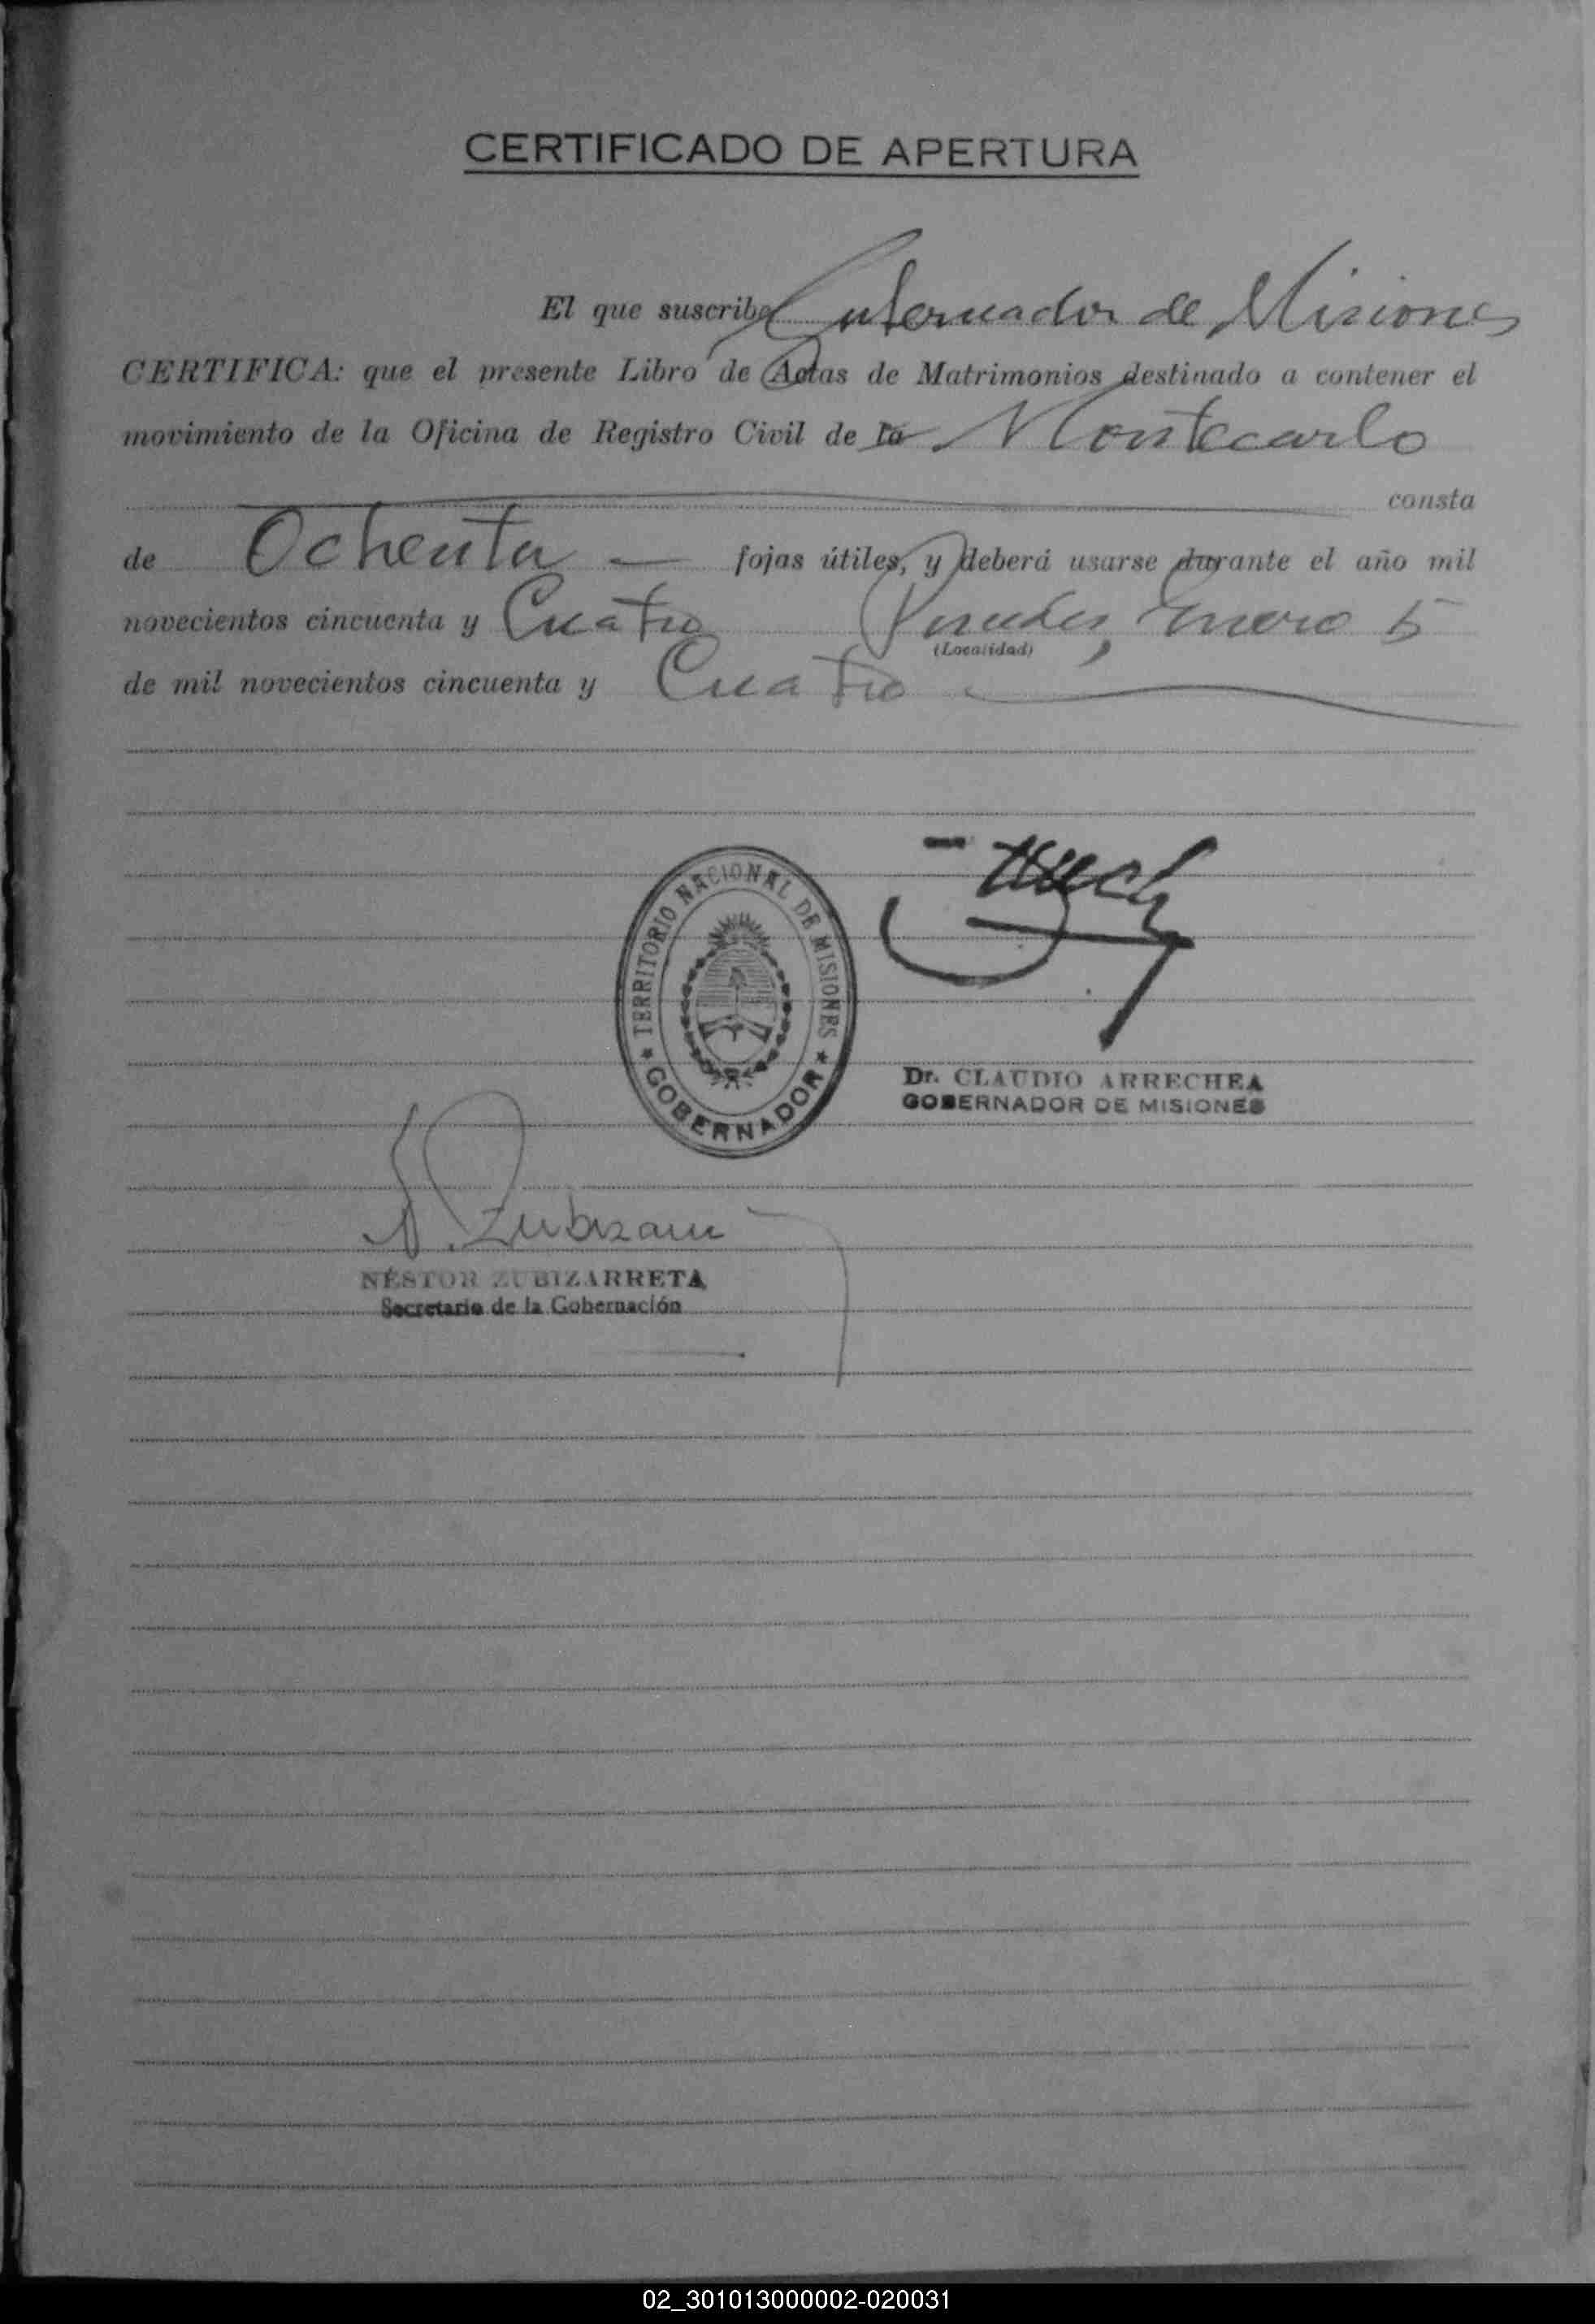 CERTIFICADO DE APERTURA
El que suscribe Gobernador de Misiones
CERTIFICA: que el presente Libro de Actas de Matrimonios destinado a contener el
movimiento de la Oficina de Registro Civil de la Montecarlo
consta
de Ochenta — fojas útiles, y deberá usarse durante el año mil
novecientos cincuenta y Cuatro Posadas, Enero 5
(Localidad)
de mil novecientos cincuenta y Cuatro
TERRITORIO NACIONAL DE MISIONES
GOBERNADOR
Dr. CLAUDIO ARRECHEA
GOBERNADOR DE MISIONES
N. Zubizarreta
NÉSTOR ZUBIZARRETA
Secretario de la Gobernación
02_301013000002-020031